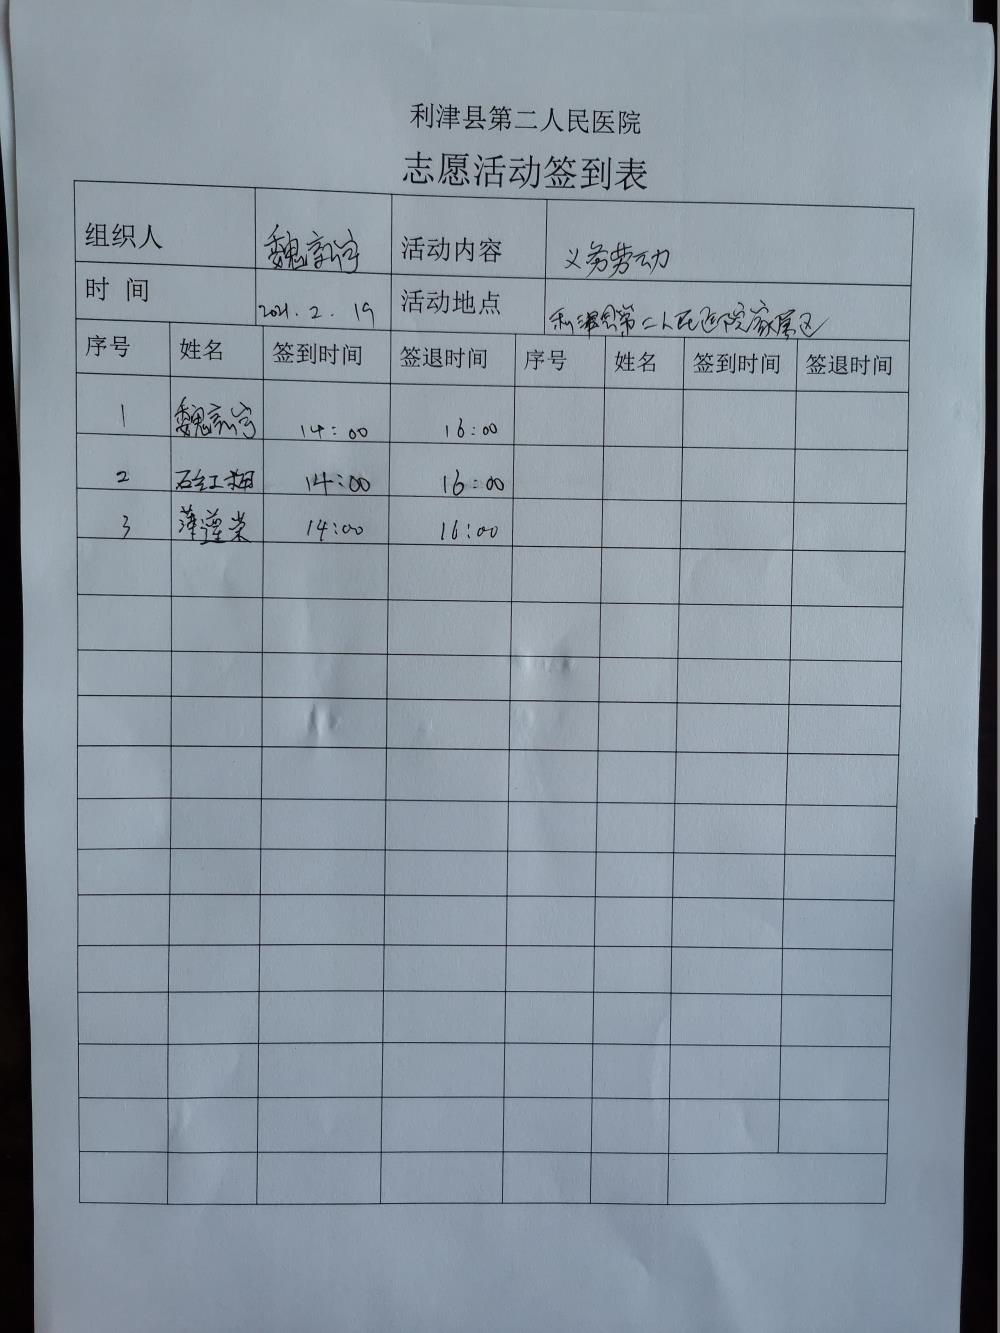 利津县第二人民医院
志愿活动签到表
组织人 魏 活动内容 义务劳动
时 间 2021.2.19 活动地点 利津县第二人民医院家属区
序号 姓名 签到时间 签退时间 序号 姓名 签到时间 签退时间
1 魏 14:00 16:00
2 石红梅 14:00 16:00
3 薄莲荣 14:00 16:00